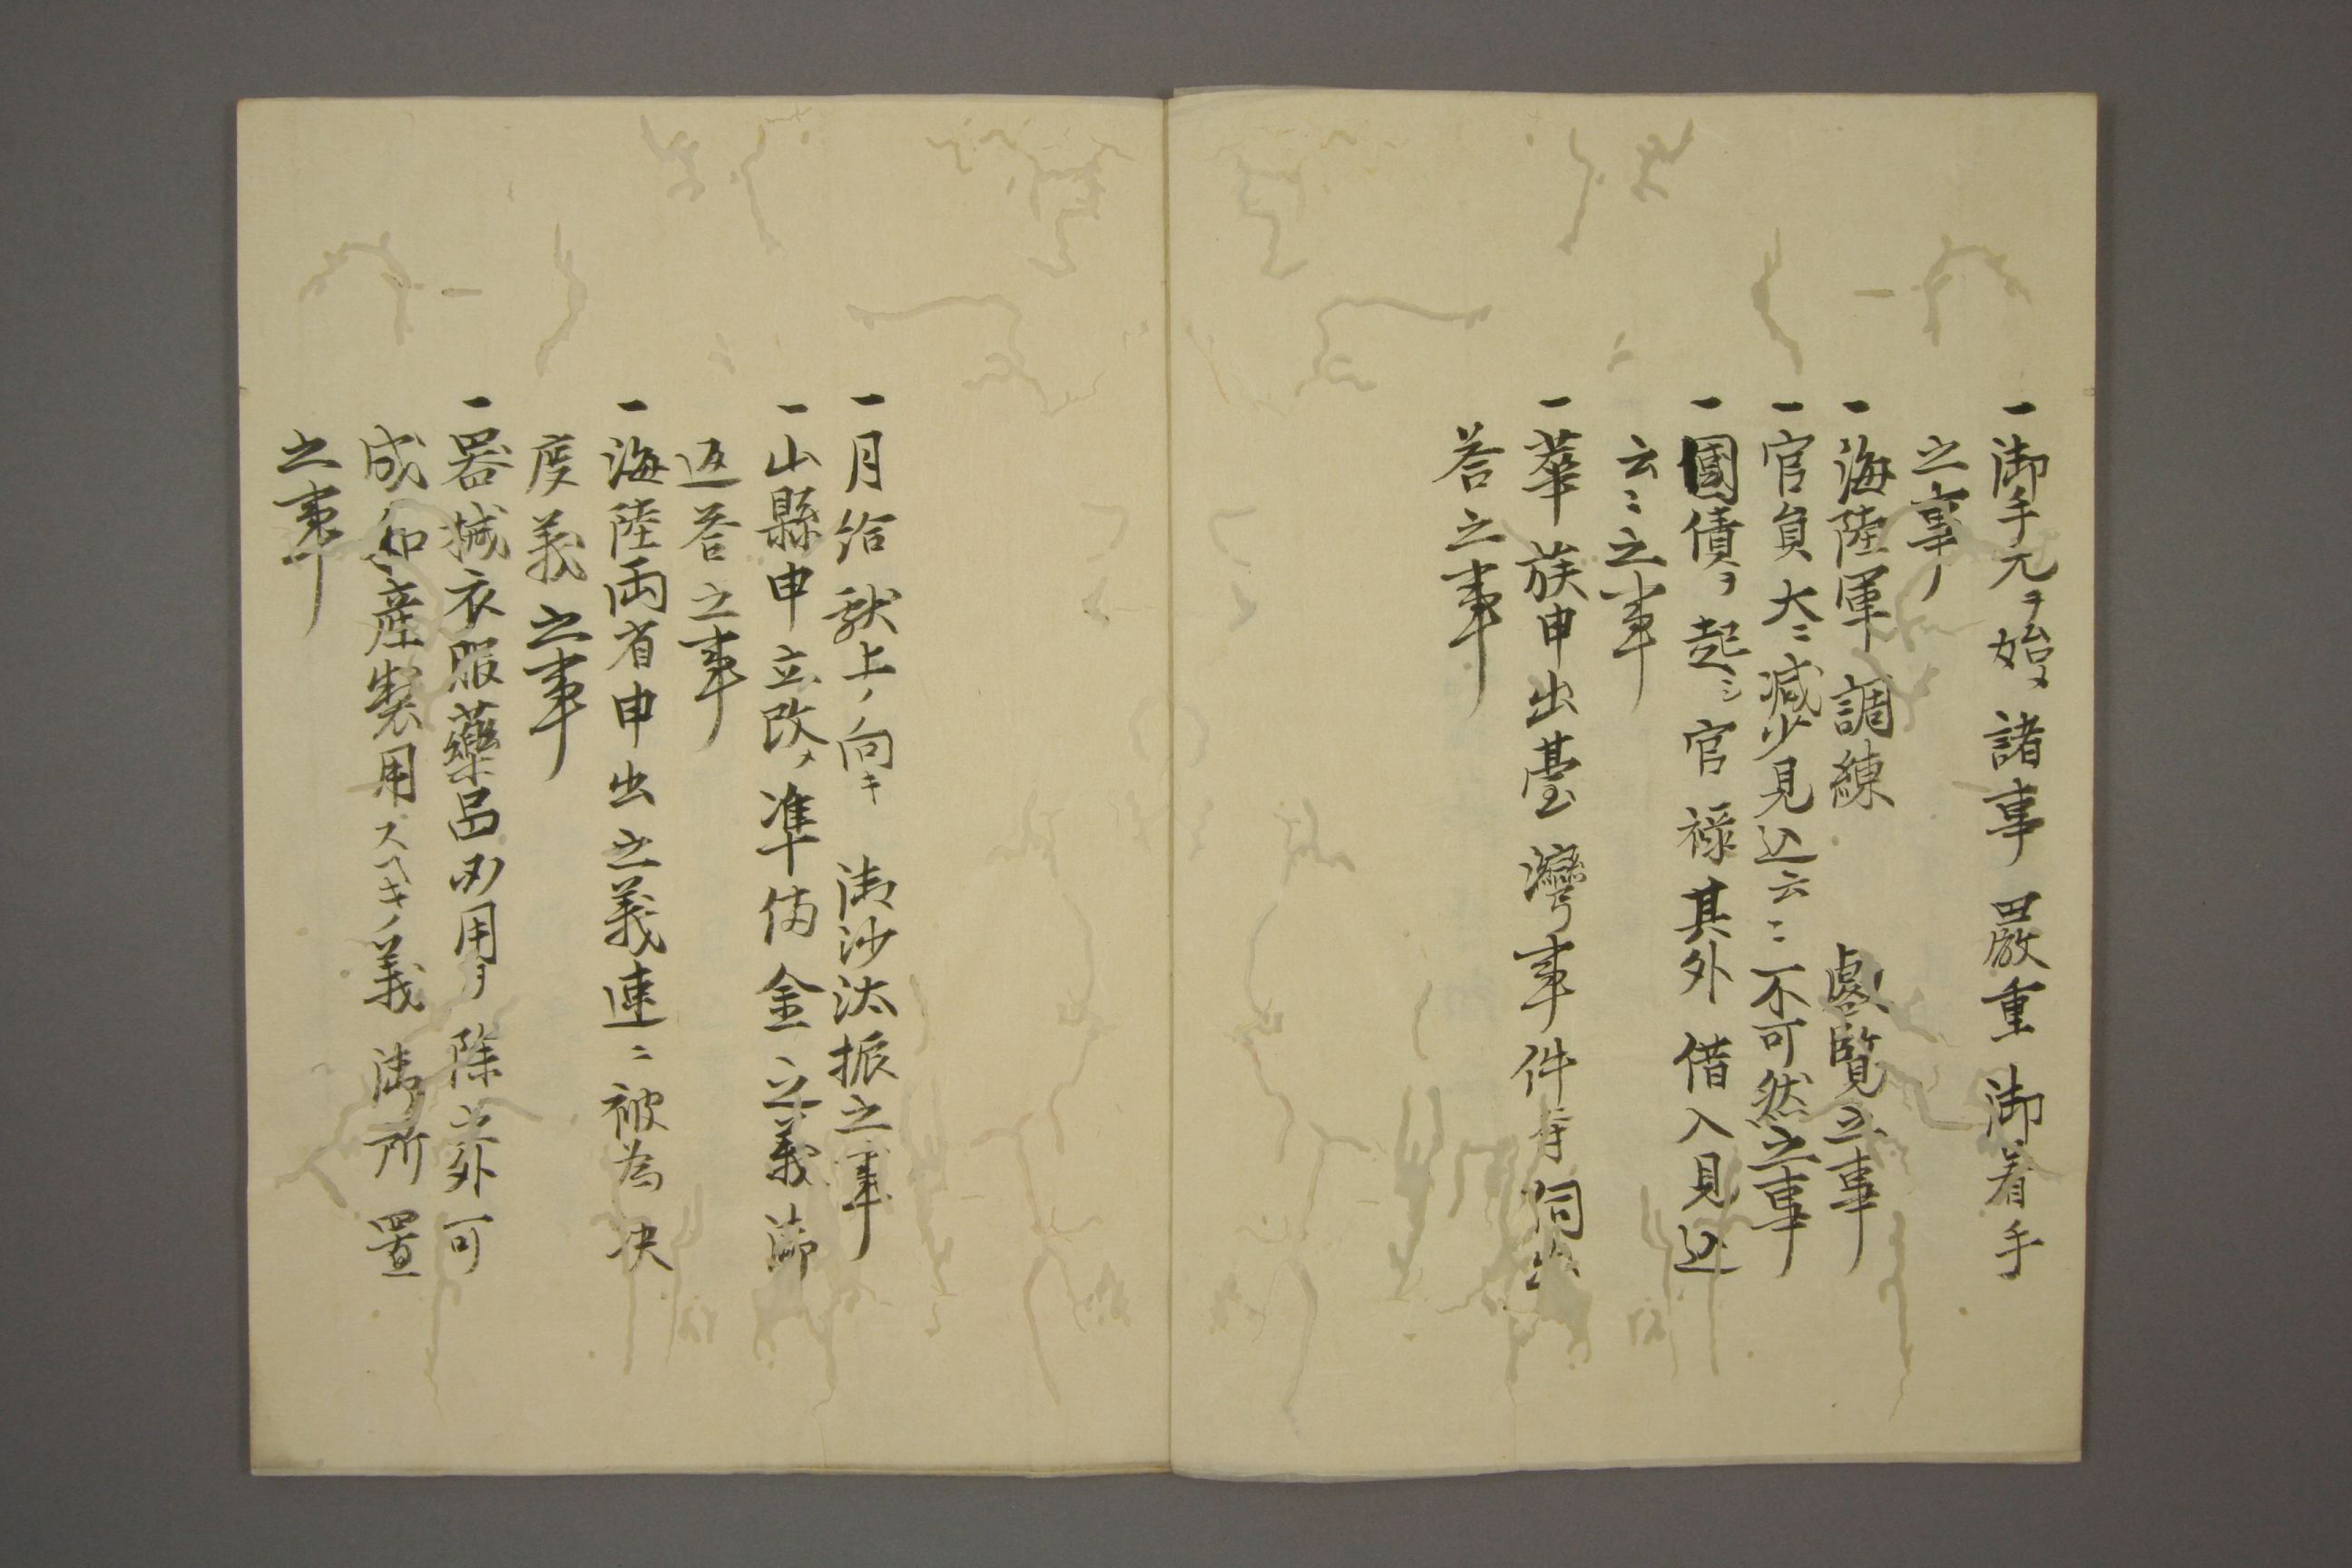 一御手元ヲ始メ諸事嚴重御着手
之事
一海陸軍調練 叡覧之事
一官員大ニ減少見込云〻不可然之事
一國債ヲ起シ官禄其外借入見込
云〻之事
一華族申出臺灣事件等伺出
答之事
一月給献上ノ向キ 御沙汰振之事
一山縣申立改メ準備金之義御
返答之事
一海陸両省申出之義速ニ被為决
度義之事
一器械衣服藥品必用ヲ除之外可
成和産製用スヘキノ義御所置
之事